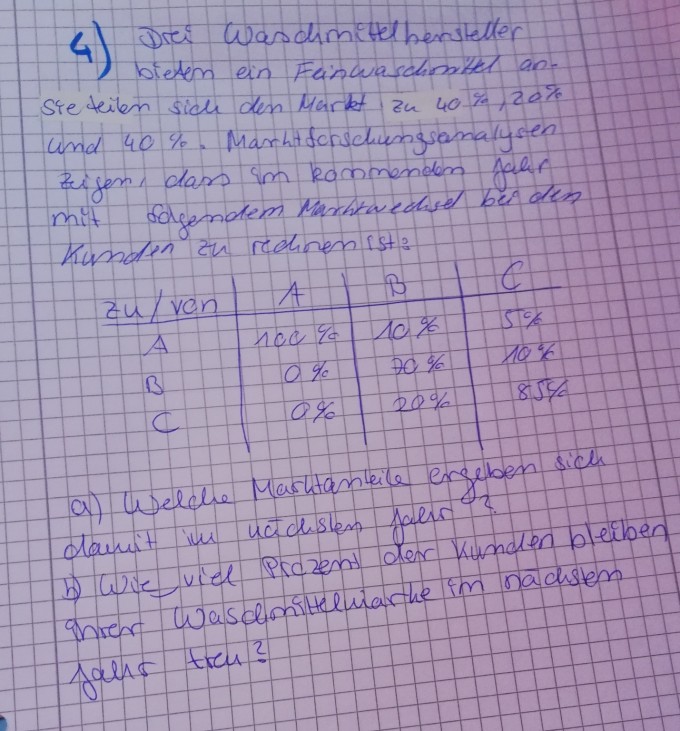 4) Drei Waschmittelhersteller
bieten ein Feinwaschmittel an.
Sie teilen sich den Markt zu 40%, 20%
und 40%. Marktforschungsanalysen
zeigen, dass im kommenden Jahr
mit folgendem Marktwechsel bei den
Kunden zu rechnen ist:
zu/von A B C
A 100% 10% 5%
B 0% 70% 10%
C 0% 20% 85%
a) Welche Marktanteile ergeben sich
damit im nächsten Jahr?
b) Wie viel Prozent der Kunden bleiben
ihrer Waschmittelmarke im nächsten
Jahr treu?